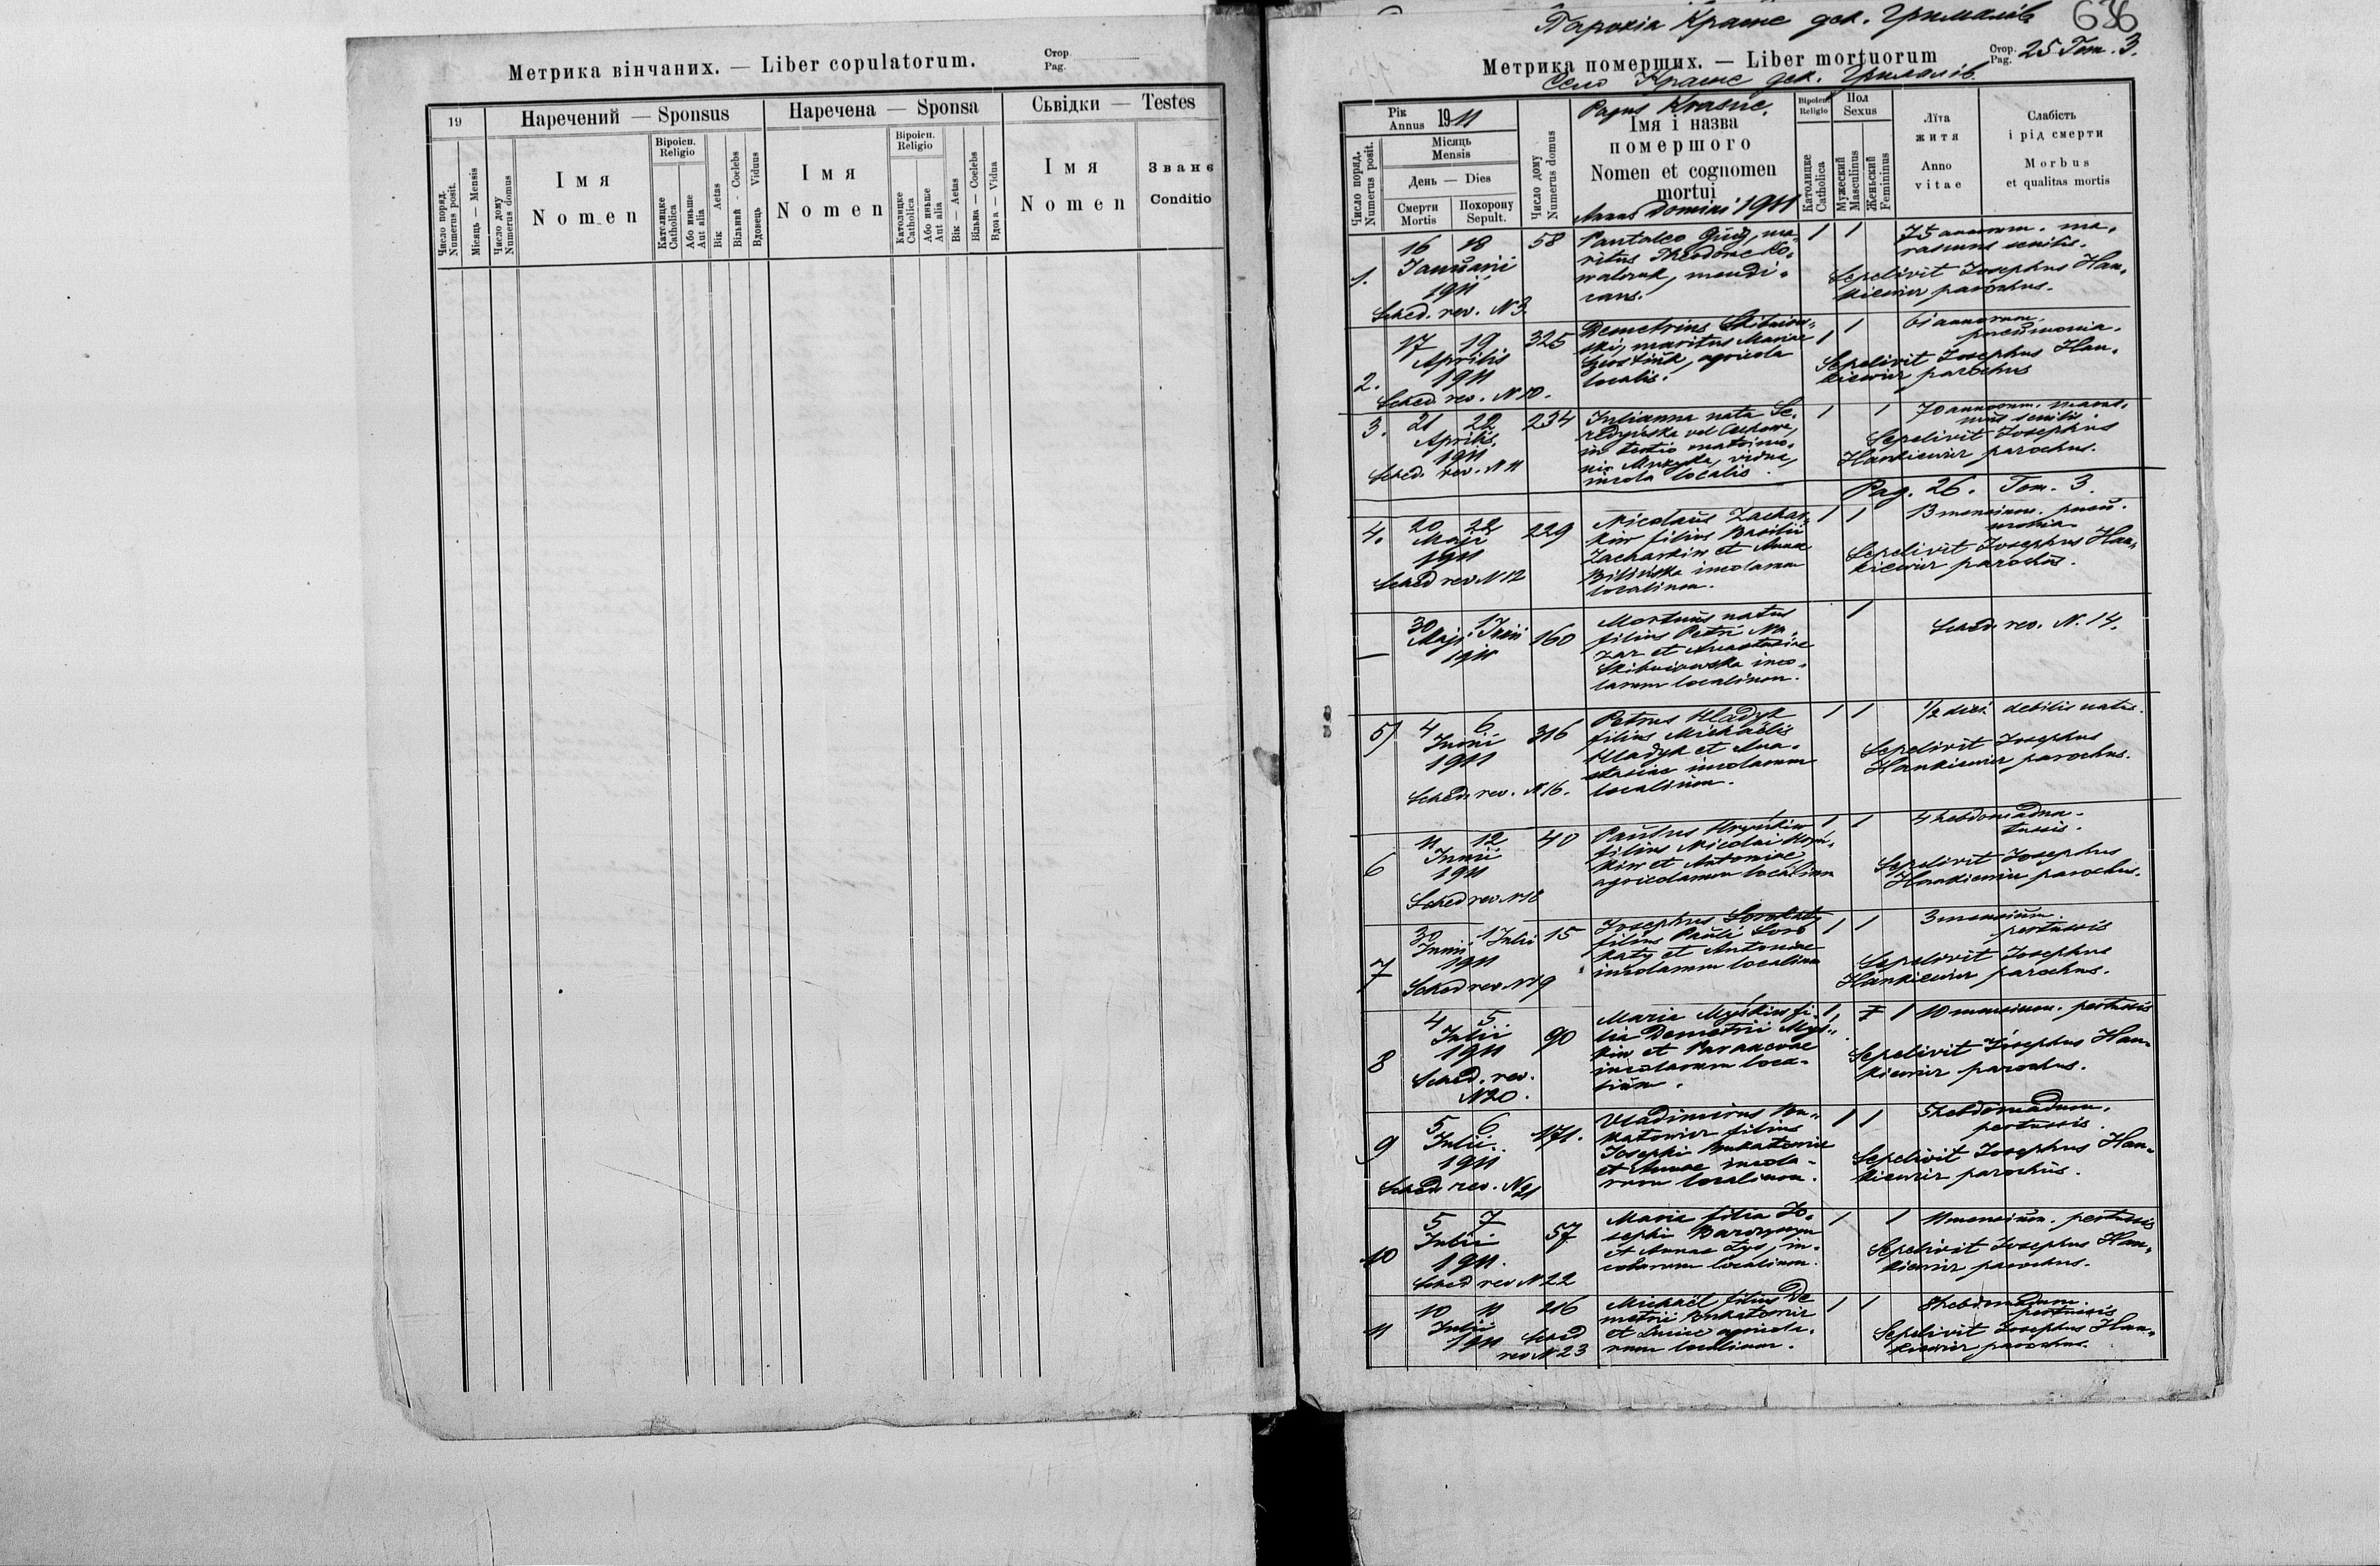 Метрика вінчаних. — Liber copulatorum.
Стор.
Pag.
19
Наречений — Sponsus
Наречена — Sponsa
Сьвідки — Testes
Число поряд.
Numerus posit.
Місяць — Mensis
Число дому
Numerus domus
Імя
Nomen
Віроісп.
Religio
Католицке
Catholica
Або иньше
Aut alia
Вік Aetas
Вільний - Coelebs
Вдовець Viduus
Імя
Nomen
Віроісп.
Religio
Католицке
Catholica
Або иньше
Aut alia
Вік — Aetas
Вільна — Coelebs
Вдова — Vidua
Імя
Nomen
Званє
Conditio
Парохія Красне дек. Грималів
636
Метрика померших. — Liber mortuorum
Стор.
Pag. 25 Tom. 3.
Село Красне дек. Грималів.
Рік
Annus 1911
Місяць
Mensis
День — Dies
Смерти
Mortis
Похорону
Sepult.
Число поряд.
Numerus posit.
Число дому
Numerus domus
Pagus Krasne.
Імя і назва
помершого
Nomen et cognomen
mortui
Annus Domini 1911
Віроісп.
Religio
Католицке
Catholica
Пол
Sexus
Мужеский
Masculinus
Женьский
Femininus
Лїта
житя
Anno
vitae
Слабість
і рід смерти
Morbus
et qualitas mortis
1.
16 18
Januarii
1911
Sched. rev. N 3.
58
Pantaleo , ma-
ritus Theodorae Ko-
walczuk, mendi-
cans.
1 1
75 annorum. ma-
rasmus senilis.
Sepelivit Josephus Han-
kiewicz parochus.
2.
17 19
Aprilis
1911
Sched. rev. N 10.
325
Demetrius Skibniow-
ski, maritus Mariae
agricola
localis.
1 1
61 annorum.
pneumonia.
Sepelivit Josephus Han-
kiewicz parochus
3.
21 22
Aprilis
1911
Sched. rev. N 11
234
Julianna nata Se-
redyńska vel
in tertio matrimo-
nio Muzyka, vidua,
incola localis.
1 1
70 annorum. maras-
mus senilis.
Sepelivit Josephus
Hankiewicz parochus.
Pag. 26. Tom. 3.
4.
20 22
Maji
1911
Sched rev N 12
229
Nicolaus Zachar-
kiw filius Basilii
Zacharkiw et Annae
Bilińska incolarum
localium.
1 1
13 mensium. pneu-
monia.
Sepelivit Josephus Han-
kiewicz parochus.
—
30 1
Maji Junii
1911
160
Mortuus natus
filius Petri Na-
zar et Anastasiae
Skibniowska inco-
larum localium.
1
Sched. rev. N. 14.
5)
4 6
Junii
1911
Sched. rev. N 16.
316
Petrus Hladyk
filius Michaëlis
Hladyk et Ana-
stasiae incolarum
localium.
1 1
1/2 diei debilis natus.
Sepelivit Josephus
Hankiewicz parochus.
6
11 12
Junii
1911
Sched rev N 18
40
Paulus Hryńkiw
filius Nicolai Hryń-
kiw et Antoniae
agricolarum localium
1 1
4 hebdomadum.
tussis.
Sepelivit Josephus
Hankiewicz parochus.
7
30 1
Junii Julii
1911
Sched rev N 19
15
Josephus Sorokaty
filius Pauli Soro
katy et Antoniae
incolarum localium
1 1
3 mensium.
pertussis
Sepelivit Josephus
Hankiewicz parochus.
8
4 5
Julii
1911
Sched. rev.
N 20.
90
Maria Myśkiw fi-
lia Demetrii Myś-
kiw et Parascevae
incolarum loca-
lium.
1 1
10 mensium. pertussis
Sepelivit Josephus Han-
kiewicz parochus.
9
5 6
Julii
1911
Sched rev. N 21
171.
Vladimirus Bu-
katowicz filius
Josephi Bukatowicz
et Annae incola-
rum localium.
1 1
5 hebdomadum.
pertussis.
Sepelivit Josephus Han-
kiewicz parochus.
10
5 7
Julii
1911.
Sched rev N 22
57
Maria filia Jo-
sephi
et Annae Lys, in-
colarum localium.
1 1
11 mensium. pertussis
Sepelivit Josephus Han-
kiewicz parochus.
11
10 11
Julii
1911
Sched
rev N 23
216
Michaël filius De
metrii Bukatowicz
et Luciae agricola-
rum localium.
1 1
8 hebdomadum.
pertussis
Sepelivit Josephus Han-
kiewicz parochus.